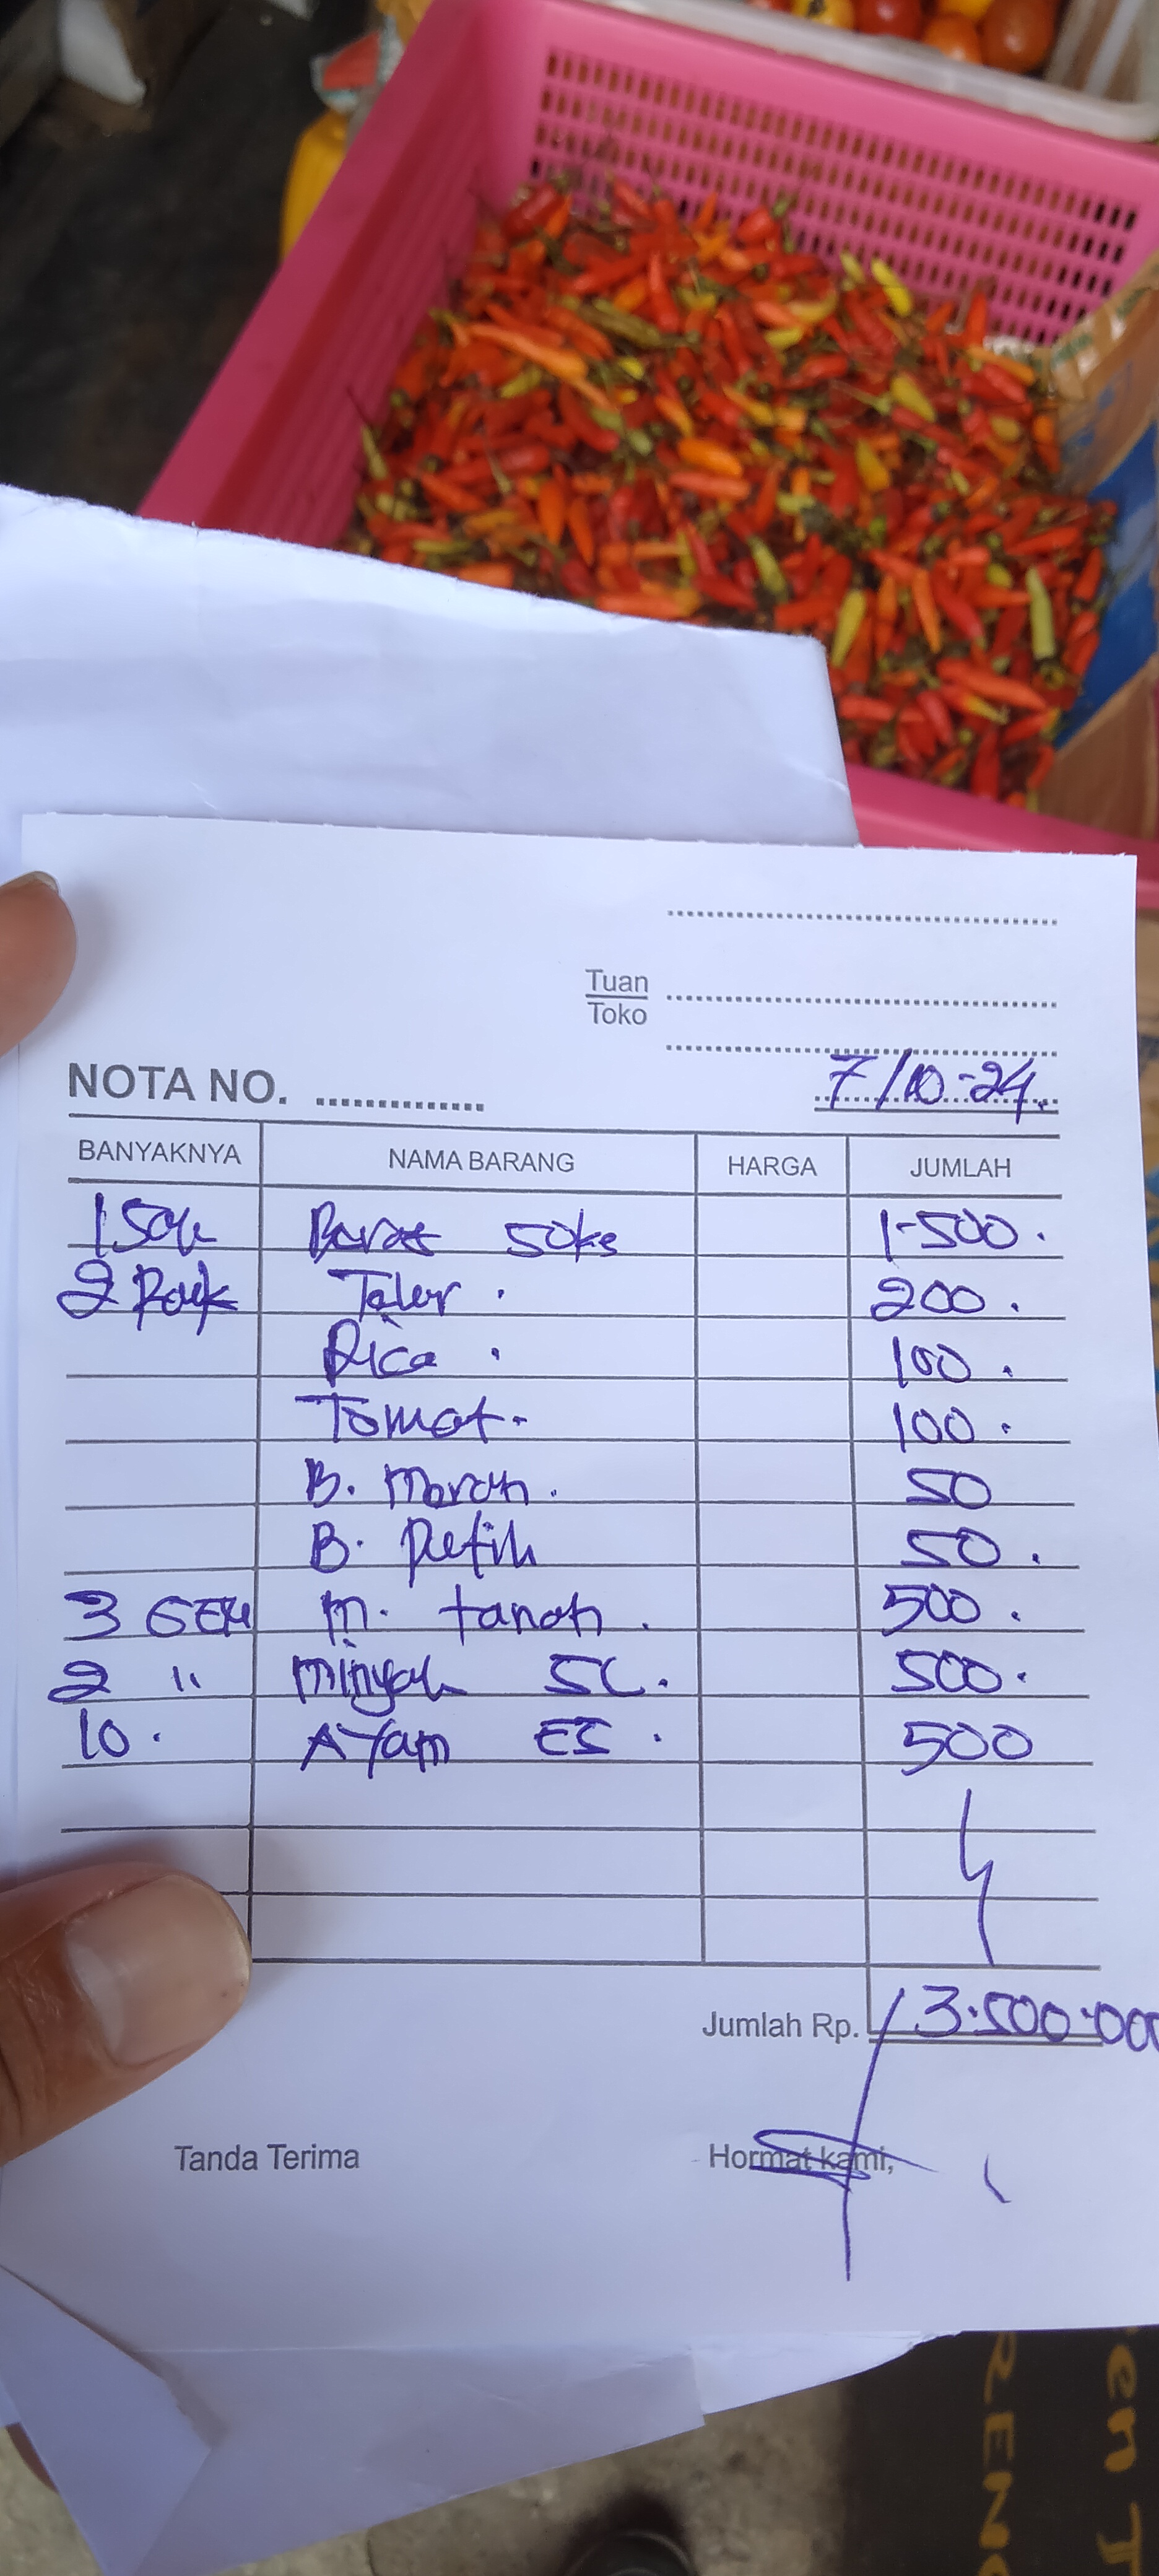 Tuan
Toko
7/10-24.
NOTA NO.
BANYAKNYA NAMA BARANG HARGA JUMLAH
1 Sak Beras 50kg 1.500.
2 Rak Telur. 200.
Rica. 100.
Tomat. 100.
B. Merah. 50
B. Putih 50.
3 GEN M. tanah. 500.
2 " Minyak 5L. 500.
10. AYam ES. 500
Jumlah Rp. 3.500.000
Tanda Terima Hormat kami,